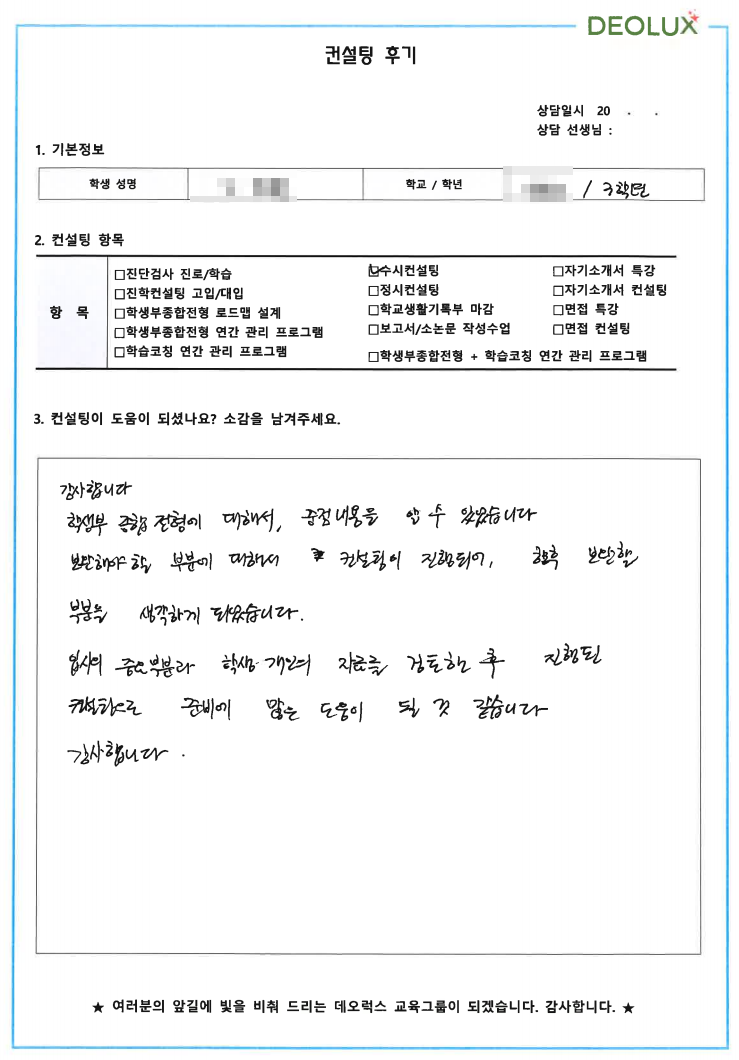 DEOLUX
컨설팅 후기
상담일시 20 . .
상담 선생님 :
1. 기본정보
학생 성명
학교 / 학년
/ 3학년
2. 컨설팅 항목
항 목
□진단검사 진로/학습
□진학컨설팅 고입/대입
□학생부종합전형 로드맵 설계
□학생부종합전형 연간 관리 프로그램
□학습코칭 연간 관리 프로그램
☑수시컨설팅
□정시컨설팅
□학교생활기록부 마감
□보고서/소논문 작성수업
□학생부종합전형 + 학습코칭 연간 관리 프로그램
□자기소개서 특강
□자기소개서 컨설팅
□면접 특강
□면접 컨설팅
3. 컨설팅이 도움이 되셨나요? 소감을 남겨주세요.
감사합니다
학생부 종합전형에 대해서, 중점내용을 알 수 있었습니다
보완해야 할 부분에 대해서 컨설팅이 진행되어, 향후 보완할
부분을 생각하게 되었습니다.
입시의 중요부분과 학생 개인의 자료를 검토한 후 진행된
컨설팅으로 준비에 많은 도움이 될 것 같습니다
감사합니다.
★ 여러분의 앞길에 빛을 비춰 드리는 데오럭스 교육그룹이 되겠습니다. 감사합니다. ★